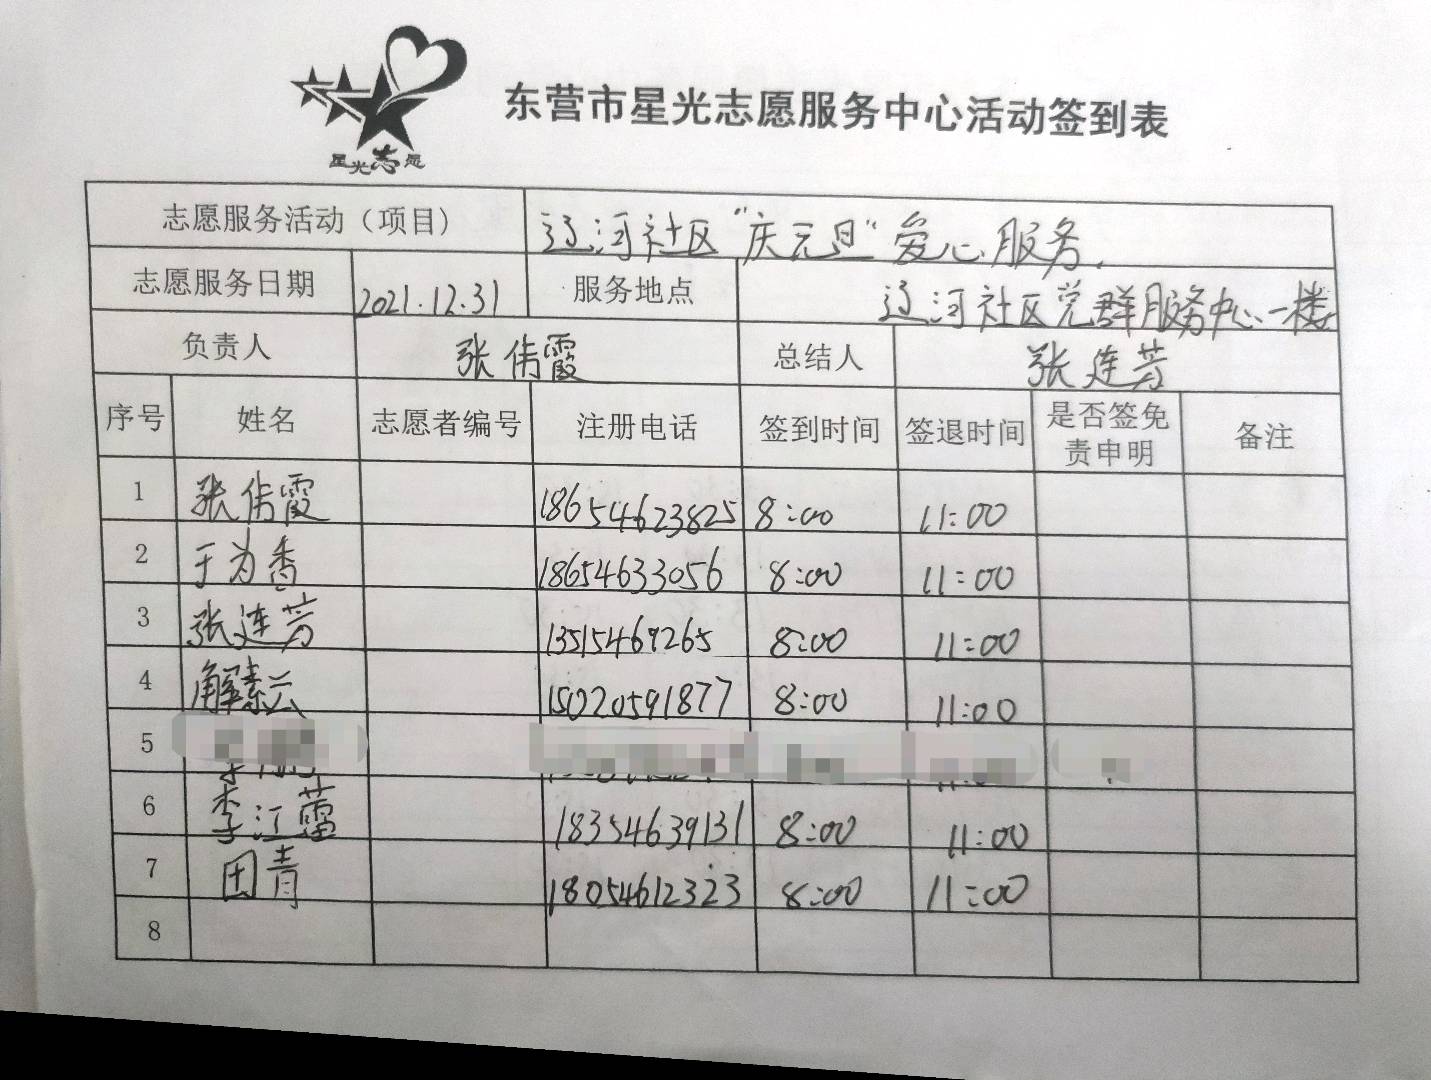 星光志愿
东营市星光志愿服务中心活动签到表
志愿服务活动（项目） 辽河社区“庆元旦”爱心服务.
志愿服务日期 2021.12.31 服务地点 辽河社区党群服务中心一楼
负责人 张倩霞 总结人 张连芳
序号 姓名 志愿者编号 注册电话 签到时间 签退时间 是否签免责申明 备注
1 张倩霞 18654623825 8:00 11:00
2 于为香 18654633056 8:00 11:00
3 张连芳 13515469265 8:00 11:00
4 解素云 15020591877 8:00 11:00
5
6 李江 18354639131 8:00 11:00
7 田青 18054612323 8:00 11:00
8